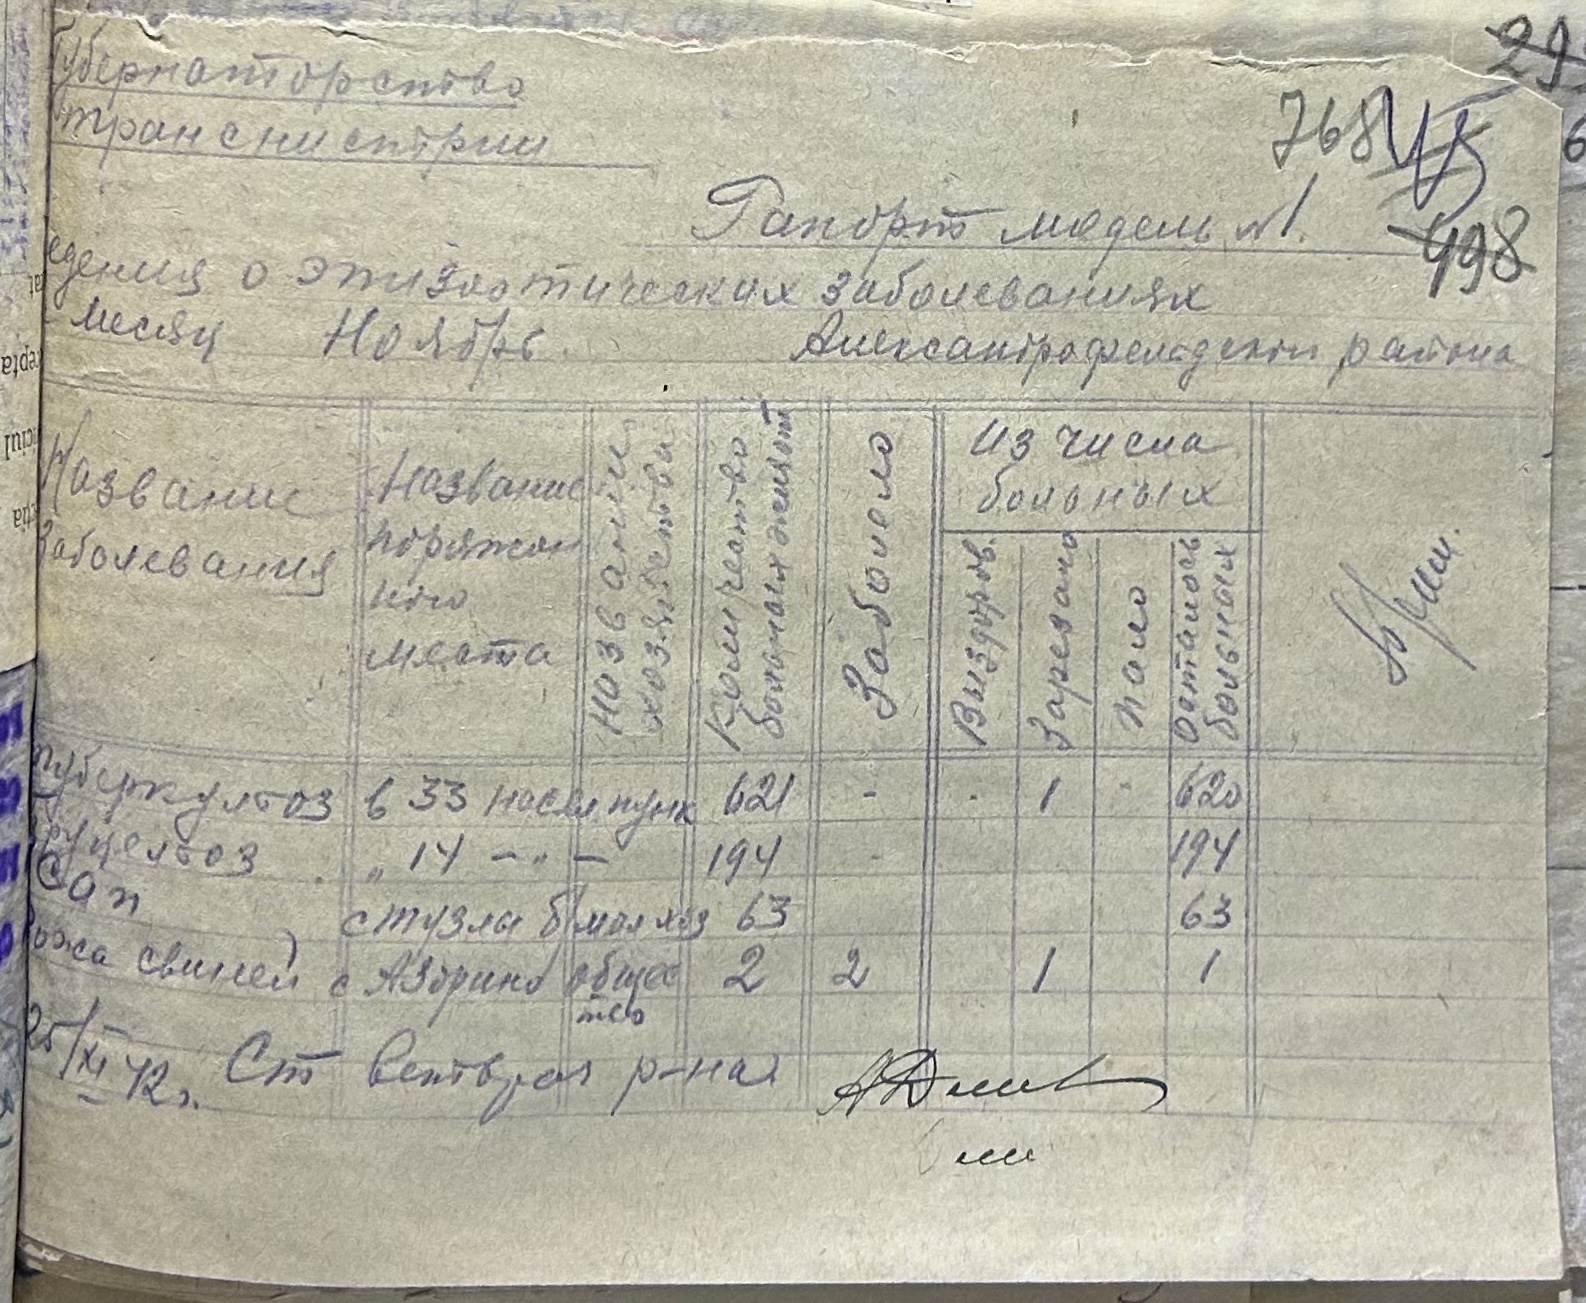 Губернаторство
Транснистрии
768
498
Рапорт модель №1.
едения о эпизоотических заболеваниях
месяц Ноябрь. Александрофельдского района
Название заболевания
Название пораженного места
Название хозяйства
Количество больных животн
Заболело
Из числа больных
Выздоров.
Зарезано
Пало
Осталось больных
туберкулоз в 33 насел пунк 621 - - 1 - 620
бруцелоз " 14 — " — 194 - 194
Сап с Тузлы б/молхоз 63 63
рожа свиней с Азорино общество 2 2 1 1
25/XI 42г. Ст Ветврач р-на